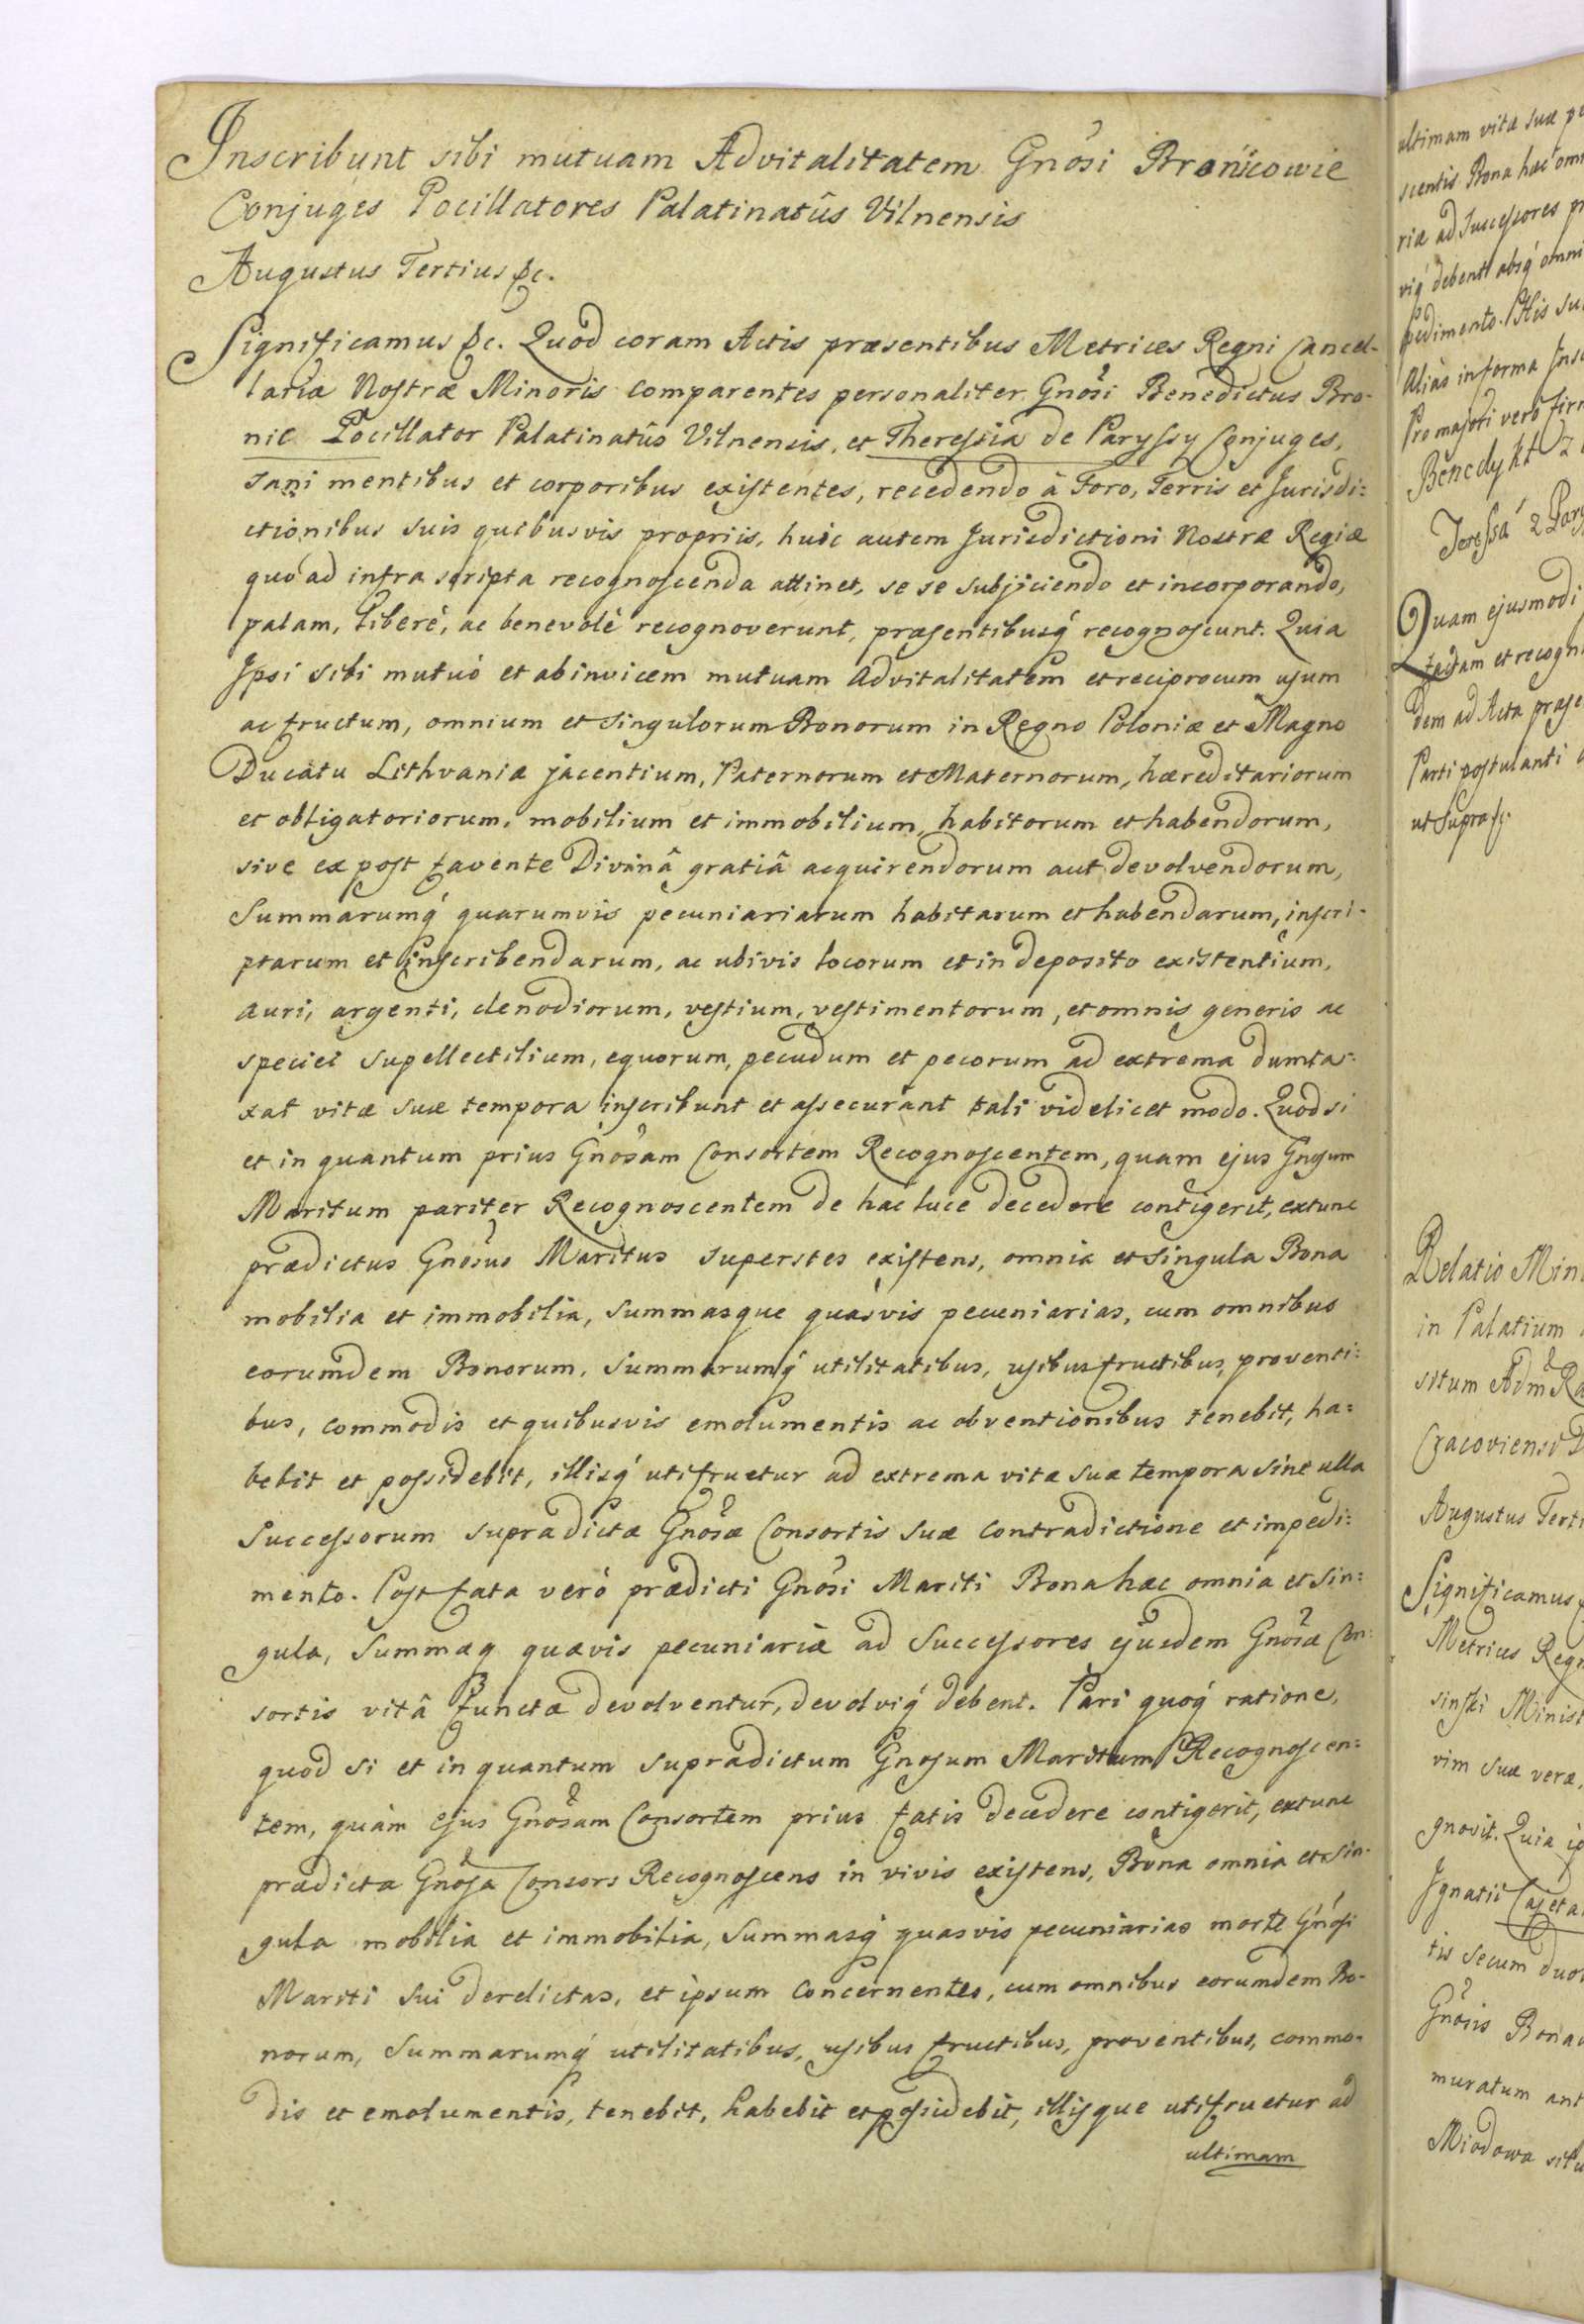 Inscribunt sibi mutuam Advitalitatem Gnõsi Bronicowie
Conjuges Pocillatores Palatinatûs Vilnensis
Augustus Tertius &c.
Significamus &c. Quod coram Actis præsentibus Metrices Regni Cancel-
lariæ Nostræ Minoris comparentes personaliter Gnõsi Benedictus Bro-
nic Pocillator Palatinatûs Vilnensis, et Theressia de Paryssy Conjuges,
sani mentibus et corporibus existentes, recedendo à Foro, Terris et Jurisdi:
ctionibus suis quibusvis propriis, huic autem Jurisdictioni Nostræ Regiæ
quò ad infra scripta recognoscenda attinet, se se subjiciendo et incorporando,
palam, liberè, ac benevolè recognoverunt, præsentibusq́ recognoscunt. Quia
Ipsi sibi mutuò et abinvicem mutuam Advitalitatem et reciprocum usum
ac fructum, omnium et singulorum Bonorum in Regno Poloniæ et Magno
Ducatu Lithvaniæ jacentium, Paternorum et Maternorum, hæreditariorum
et obligatoriorum, mobilium et immobilium, habitorum et habendorum,
sive ex post favente Divinâ gratiâ acquirendorum aut devolvendorum,
Summarumq́ quarumvis pecuniariarum habitarum et habendarum, inscri-
ptarum et inscribendarum, ac ubivis locorum et in deposito existentium,
auri, argenti, clenodiorum, vestium, vestimentorum, et omnis generis ac
speciei supellectilium, equorum, pecudum et pecorum ad extrema dumta-
xat vitæ suæ tempora inscribunt et assecurant tali videlicet modo. Quod si
et in quantum prius Gnõsam Consortem Recognoscentem, quam ejus Gnõsum
Maritum pariter Recognoscentem de hac luce decedere contigerit, extunc
prædictus Gnõsus Maritus superstes existens, omnia et singula Bona
mobilia et immobilia, summasque quasvis pecuniarias, cum omnibus
eorumdem Bonorum, Summarumq́ utilitatibus, usibus fructibus, proventi:
bus, commodis et quibusvis emolumentis ac obventionibus tenebit, ha:
bebit et possidebit, illisq́ utifruetur ad extrema vitæ suæ tempora sine ulla
Successorum supradictæ Gnõsæ Consortis suæ contradictione et impedi:
mento. Post fata verò prædicti Gnõsi Mariti Bona hæc omnia et sin:
gula, Summæq quævis pecuniariæ ad Successores ejusdem Gnõsæ Con:
sortis vitâ functæ devolventur, devolviq́ debent. Pari quoq́ ratione,
quod si et in quantum supradictum Gnosum Maritum Recognoscen:
tem, quàm ejus Gnõsam Consortem prius fatis decedere contigerit, extunc
prædicta Gnõsa Consors Recognoscens in vivis existens, Bona omnia et sin-
gula mobilia et immobilia, Summasq́ quasvis pecuniarias morte Gnõsi
Mariti sui derelictas, et ipsum concernentes, cum omnibus eorumdem Bo-
norum, Summarumq́ utilitatibus, usibus fructibus, proventibus, commo-
dis et emolumentis, tenebit, habebit et possidebit, illisque utifruetur ad
ultimam
ultimam vitæ suæ
scentis Bona hæc
riæ ad Successores
viq́ debent absq́
pedimento.
Alias in forma
Pro majori vero
Benedykt
Teressa z
Quam ejusmodi
factam et
dem ad Acta
Parti postulanti
ut supra
Relatio
in Palatium
situm
Augustus
Significamus
Metrices
Minist
vim suæ veræ,
gnovit. Quia
Ignatii
tis secum
Gnõsis
muratum
Miodowa